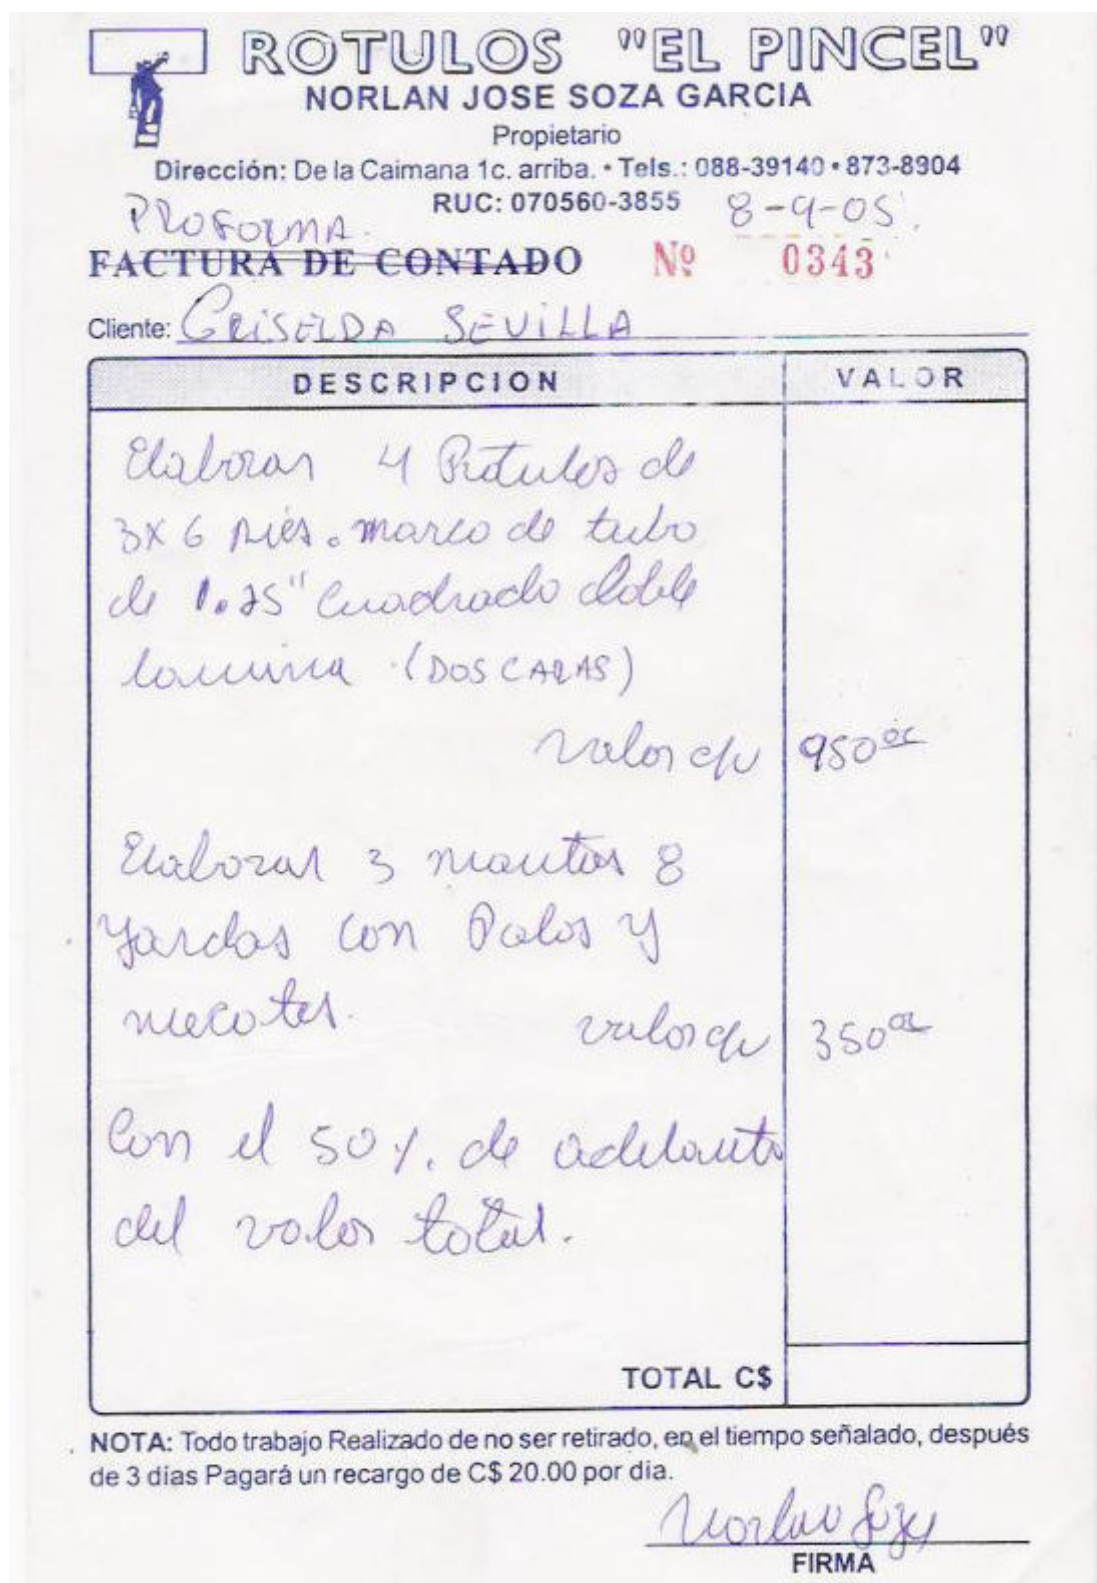 ROTULOS "EL PINCEL"
NORLAN JOSE SOZA GARCIA
Propietario
Dirección: De la Caimana 1c. arriba. • Tels.: 088-39140 • 873-8904
RUC: 070560-3855 8-9-05
PROFORMA.
FACTURA DE CONTADO Nº 0343
Cliente: GRISELDA SEVILLA
DESCRIPCION VALOR
Elaborar 4 Rotulos de
3x6 pies. marco de tubo
de 1.25" cuadrado doble
lamina (DOS CARAS)
valor c/u 950.00
Elaborar 3 mantas 8
yardas con Palos y
mecates.
valor c/u 350.00
Con el 50%. de adelanto
del valor total.
TOTAL C$
NOTA: Todo trabajo Realizado de no ser retirado, en el tiempo señalado, después
de 3 días Pagará un recargo de C$ 20.00 por dia.
Norlan Soza
FIRMA